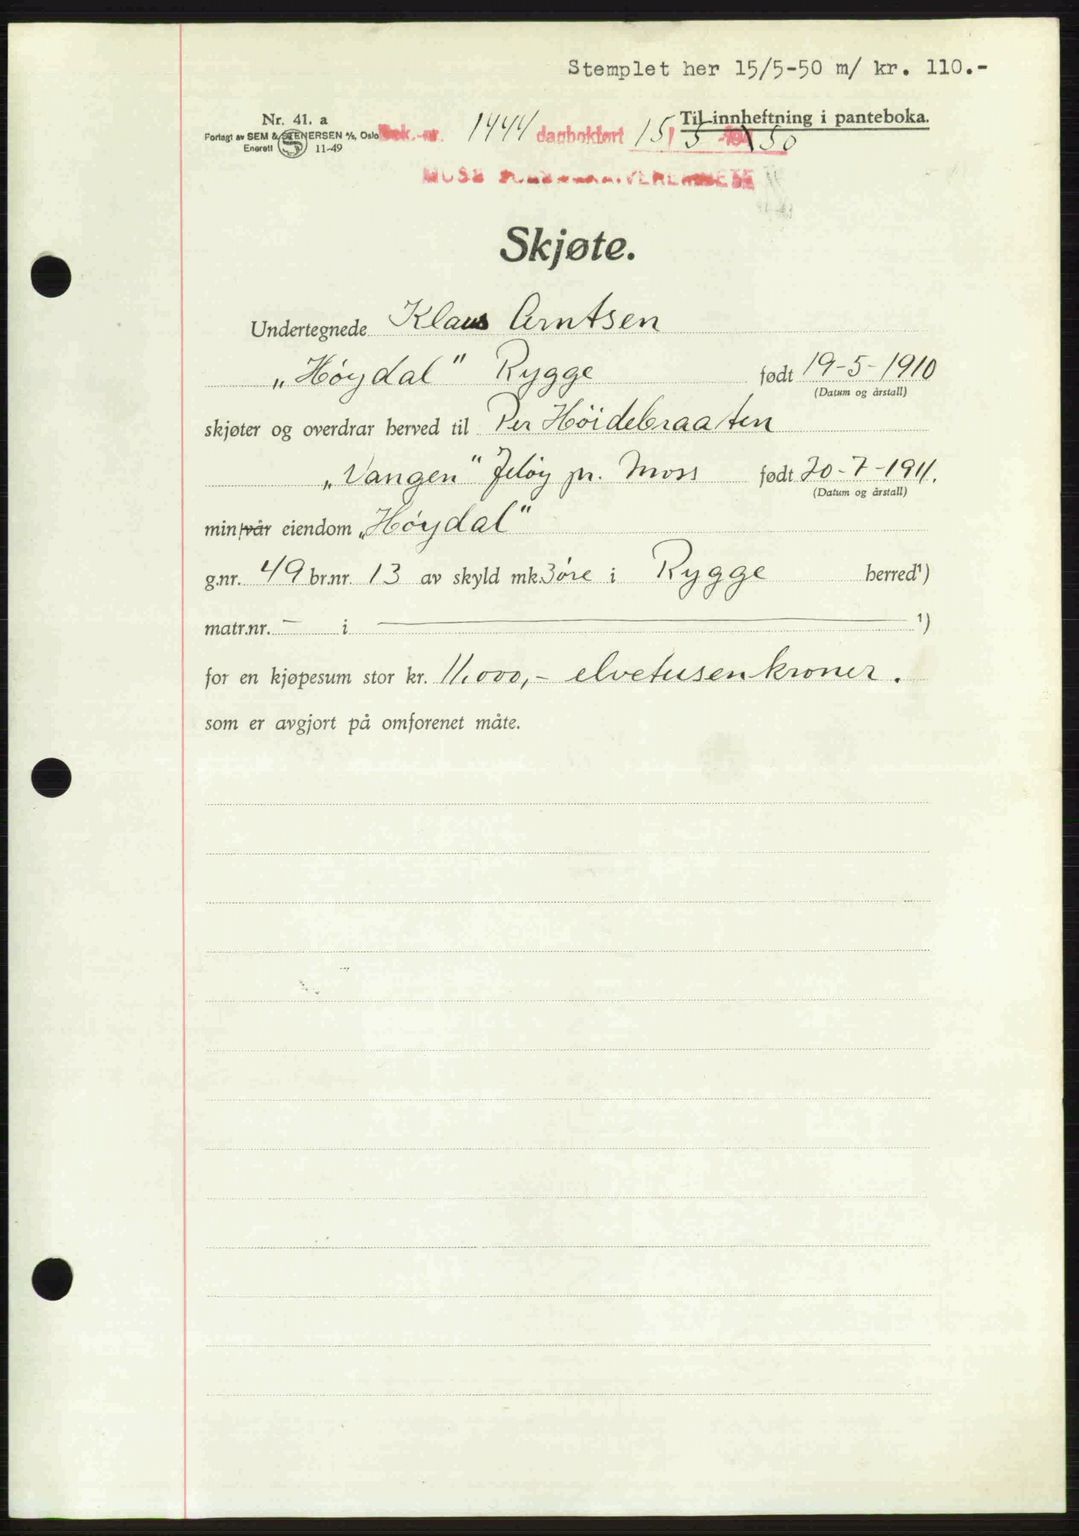 Stemplet her 15/5-50 m/ kr. 110.-
Nr. 41. a
Til innheftning i panteboka.
Forlagt av SEM & STENERSEN A/S, Oslo
Enerett 11-49
Dok.-nr. 1444 dagbokført 15/5 1950
MOSS
Skjøte.
Undertegnede Klaus Arntsen
„Høydal" Rygge født 19-5-1910
(Datum og årstall)
skjøter og overdrar herved til Per Höidebraaten
„Vangen" Jeløy pr. Moss født 20-7-1911.
(Datum og årstall)
min/vår eiendom „Høydal"
g.nr. 49 br.nr. 13 av skyld mk. 3øre i Rygge herred¹)
matr.nr. — i — ¹)
for en kjøpesum stor kr. 11.000,- elvetusenkroner.
som er avgjort på omforenet måte.